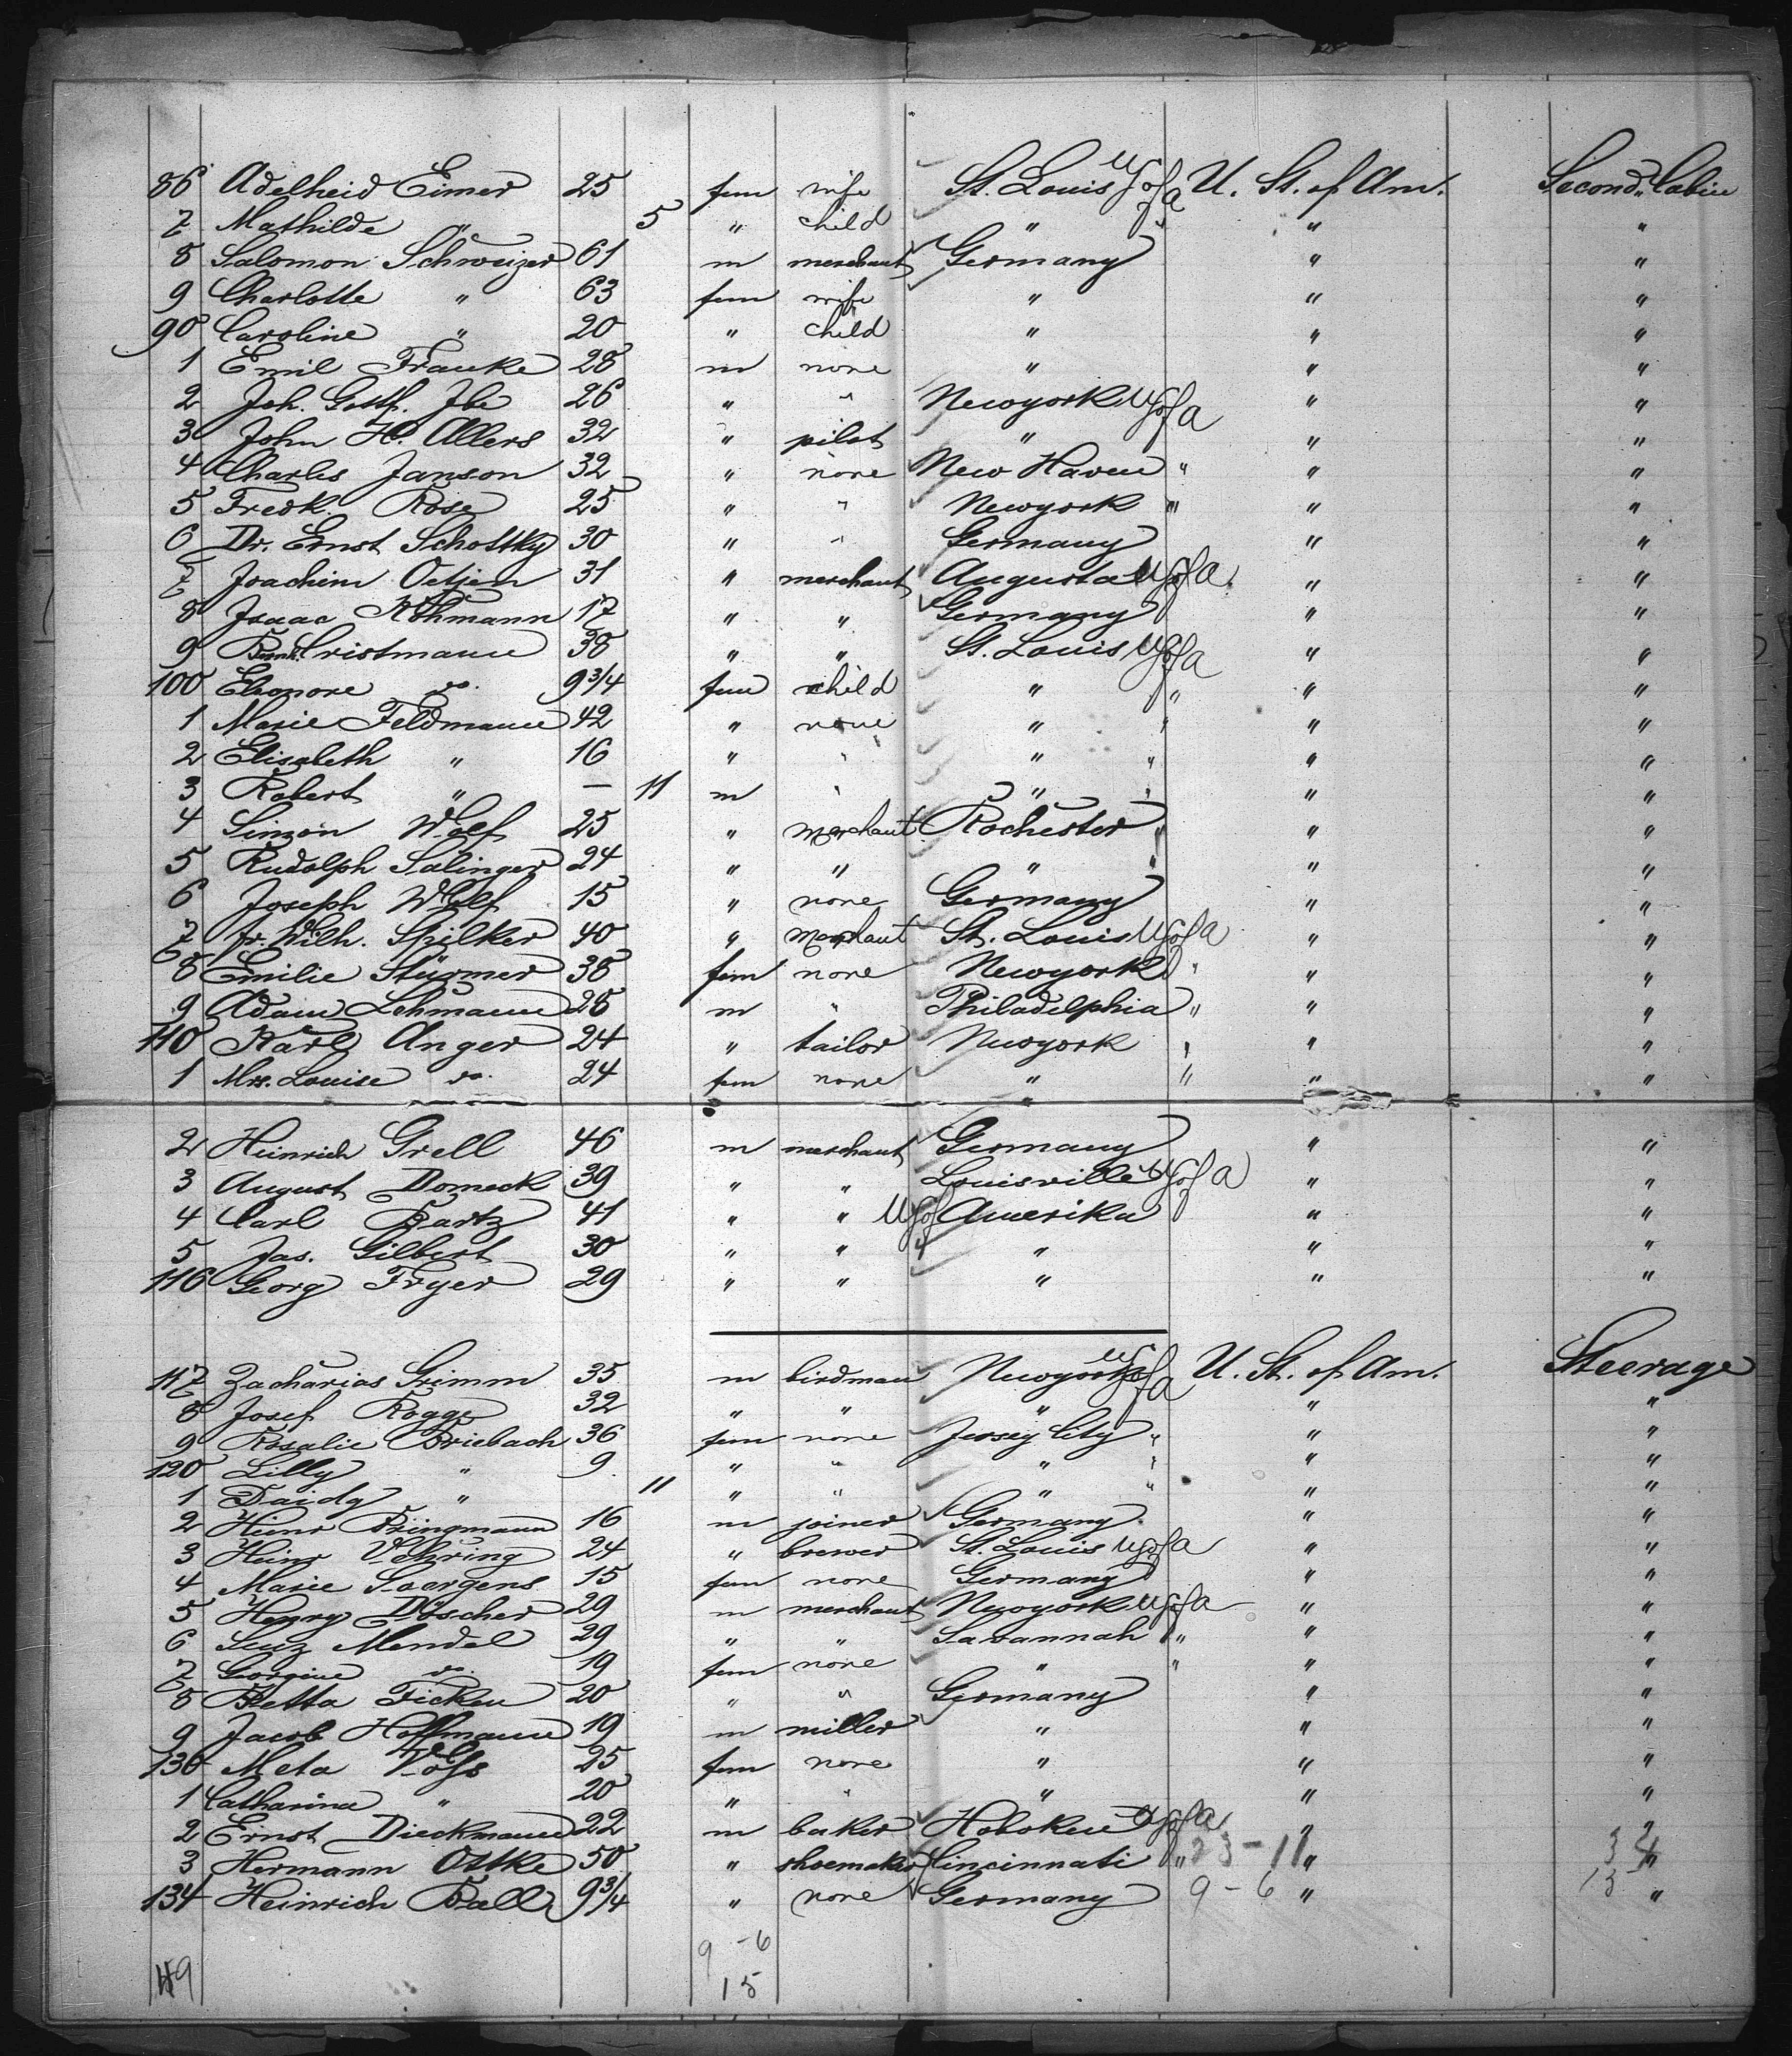 86 Adelheid Eimer 25 fem wife St. Louis U S of A U. St. of Am. Second Cabin
7 Mathilde " 5 " child " " " "
8 Salomon Schweizer 61 m merchant Germany " "
9 Charlotte " 63 fem wife " " "
90 Caroline " 20 " child " " "
1 Emil Franke 28 m none " " "
2 Joh. Gottf. Ibe 26 " " Newyork U S of A " "
3 John H. Allers 32 " pilot " " "
4 Charles Janson 32 " none New Haven " " "
5 Fredk. Rose 25 " " Newyork " " "
6 Dr. Ernst Schottky 30 " " Germany " "
7 Joachim Oetjen 31 " merchant Augusta U S of A " "
8 Isaac Kohmann 17 " " Germany " "
9 Bernh. Cristmann 38 " " St. Louis U S of A " "
100 Eleonore do. 9 3/4 fem child " " " "
1 Marie Feldmann 42 " none " " " "
2 Elisabeth " 16 " " " " " "
3 Robert " — 11 m " " " " "
4 Simon Wolf 25 " merchant Rochester " " "
5 Rudolph Salinger 24 " " " " " "
6 Joseph Wolf 15 " none Germany " "
7 Fr. Wilh. Spilker 40 " merchant St. Louis U S of A " "
8 Emilie Stürmer 38 fem none Newyork " " "
9 Adam Lehmann 28 m " Philadelphia " " "
110 Karl Anger 24 " tailor Newyork " " "
1 Mrs. Louise do. 24 fem none " " " "
2 Heinrich Grell 46 m merchant Germany " "
3 August Domeck 39 " " Louisville U S of A " "
4 Carl Bartz 41 " " U S of Amerika " "
5 Jas. Gilbert 30 " " " " "
116 Georg Fryer 29 " " " " "
117 Zacharias Grimm 35 m birdman Newyork U S of A U. St. of Am. Steerage
8 Josef Rogge 32 " " " " "
9 Rosalie Briebach 36 fem none Jersey City " " "
120 Lilly " 9 " " " " " "
1 Daidy " 11 " " " " " "
2 Heinr Bringmann 16 m joiner Germany " "
3 Heinr Vohring 24 " brewer St. Louis U S of A " "
4 Marie Soergens 15 fem none Germany " "
5 Henry Döscher 29 m merchant Newyork U S of A " "
6 Mendel 29 " " Savannah " " "
7 Georgine do. 19 fem none " " " "
8 Betta Ficken 20 " " Germany " "
9 Jacob Hoffmann 19 m miller " " "
130 Meta Voss 25 fem none " " "
1 Catharina " 20 " " " " "
2 Ernst Dieckmann 22 m baker Hoboken U S of A " "
3 Hermann Ottke 50 " shoemaker Cincinnati " 23 - 11 " 34 "
134 Heinrich Ball 9 3/4 " none Germany 9 - 6 " 15 "
9 - 6
49 15